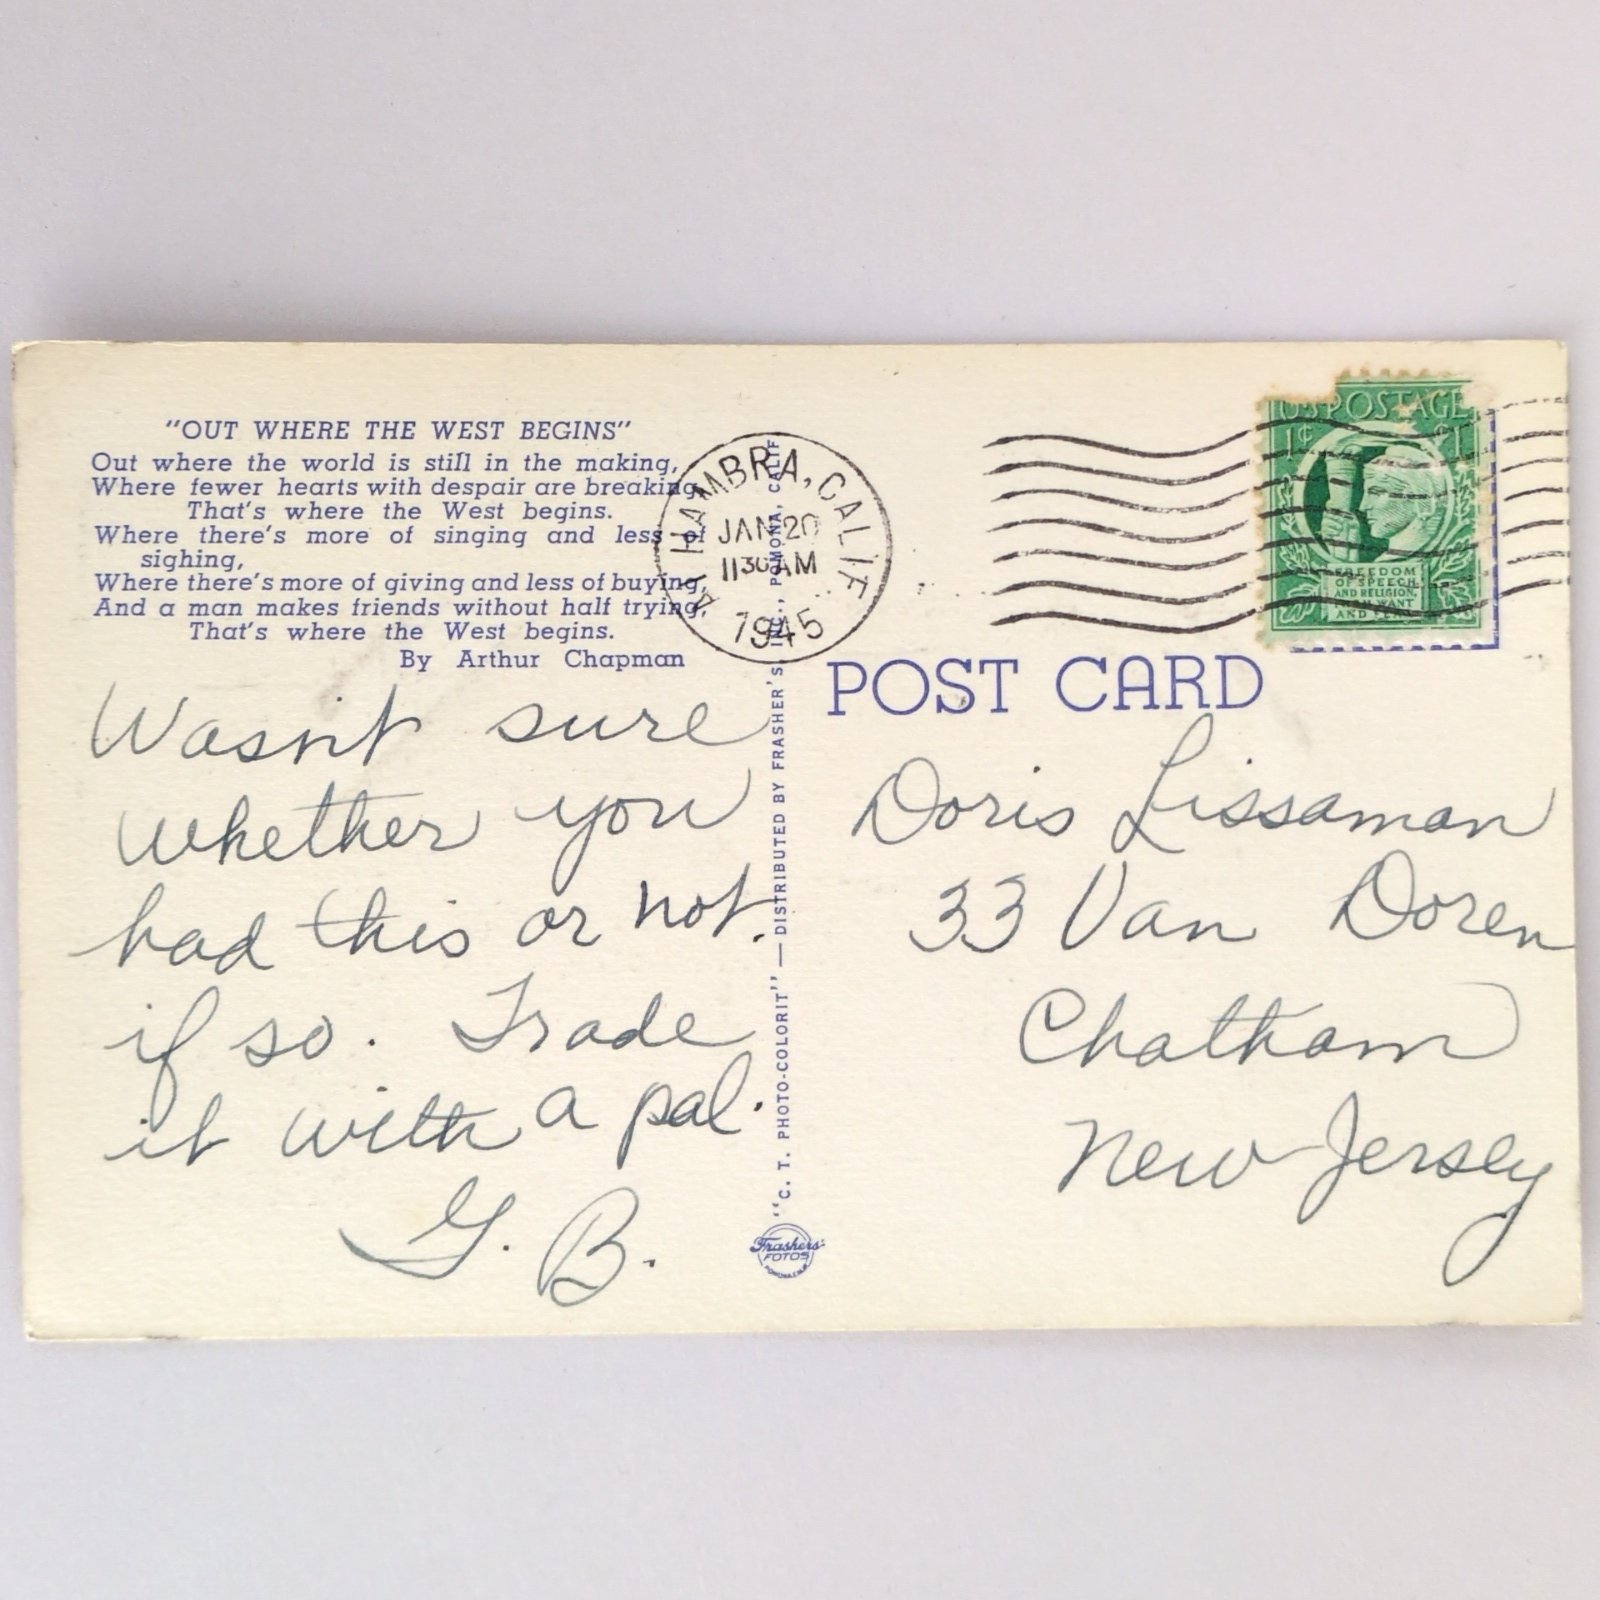 "OUT WHERE THE WEST BEGINS"
Out where the world is still in the making,
Where fewer hearts with despair are breaking,
That's where the West begins.
Where there's more of singing and less of
sighing,
Where there's more of giving and less of buying,
And a man makes friends without half trying,
That's where the West begins.
By Arthur Chapman
Wasn't sure
whether you
had this or not.
if so. Trade
it with a pal.
G. B.
"C. T. PHOTO-COLORIT" — DISTRIBUTED BY FRASHER'S INC., POMONA, CALIF
Frashers'
FOTOS
ALHAMBRA, CALIF.
JAN 20
1130 AM
1945
U.S. POSTAGE
1¢ 1¢
FREEDOM
OF SPEECH
AND RELIGION,
FROM WANT
AND FEAR
POST CARD
Doris Lissaman
33 Van Doren
Chatham
New Jersey